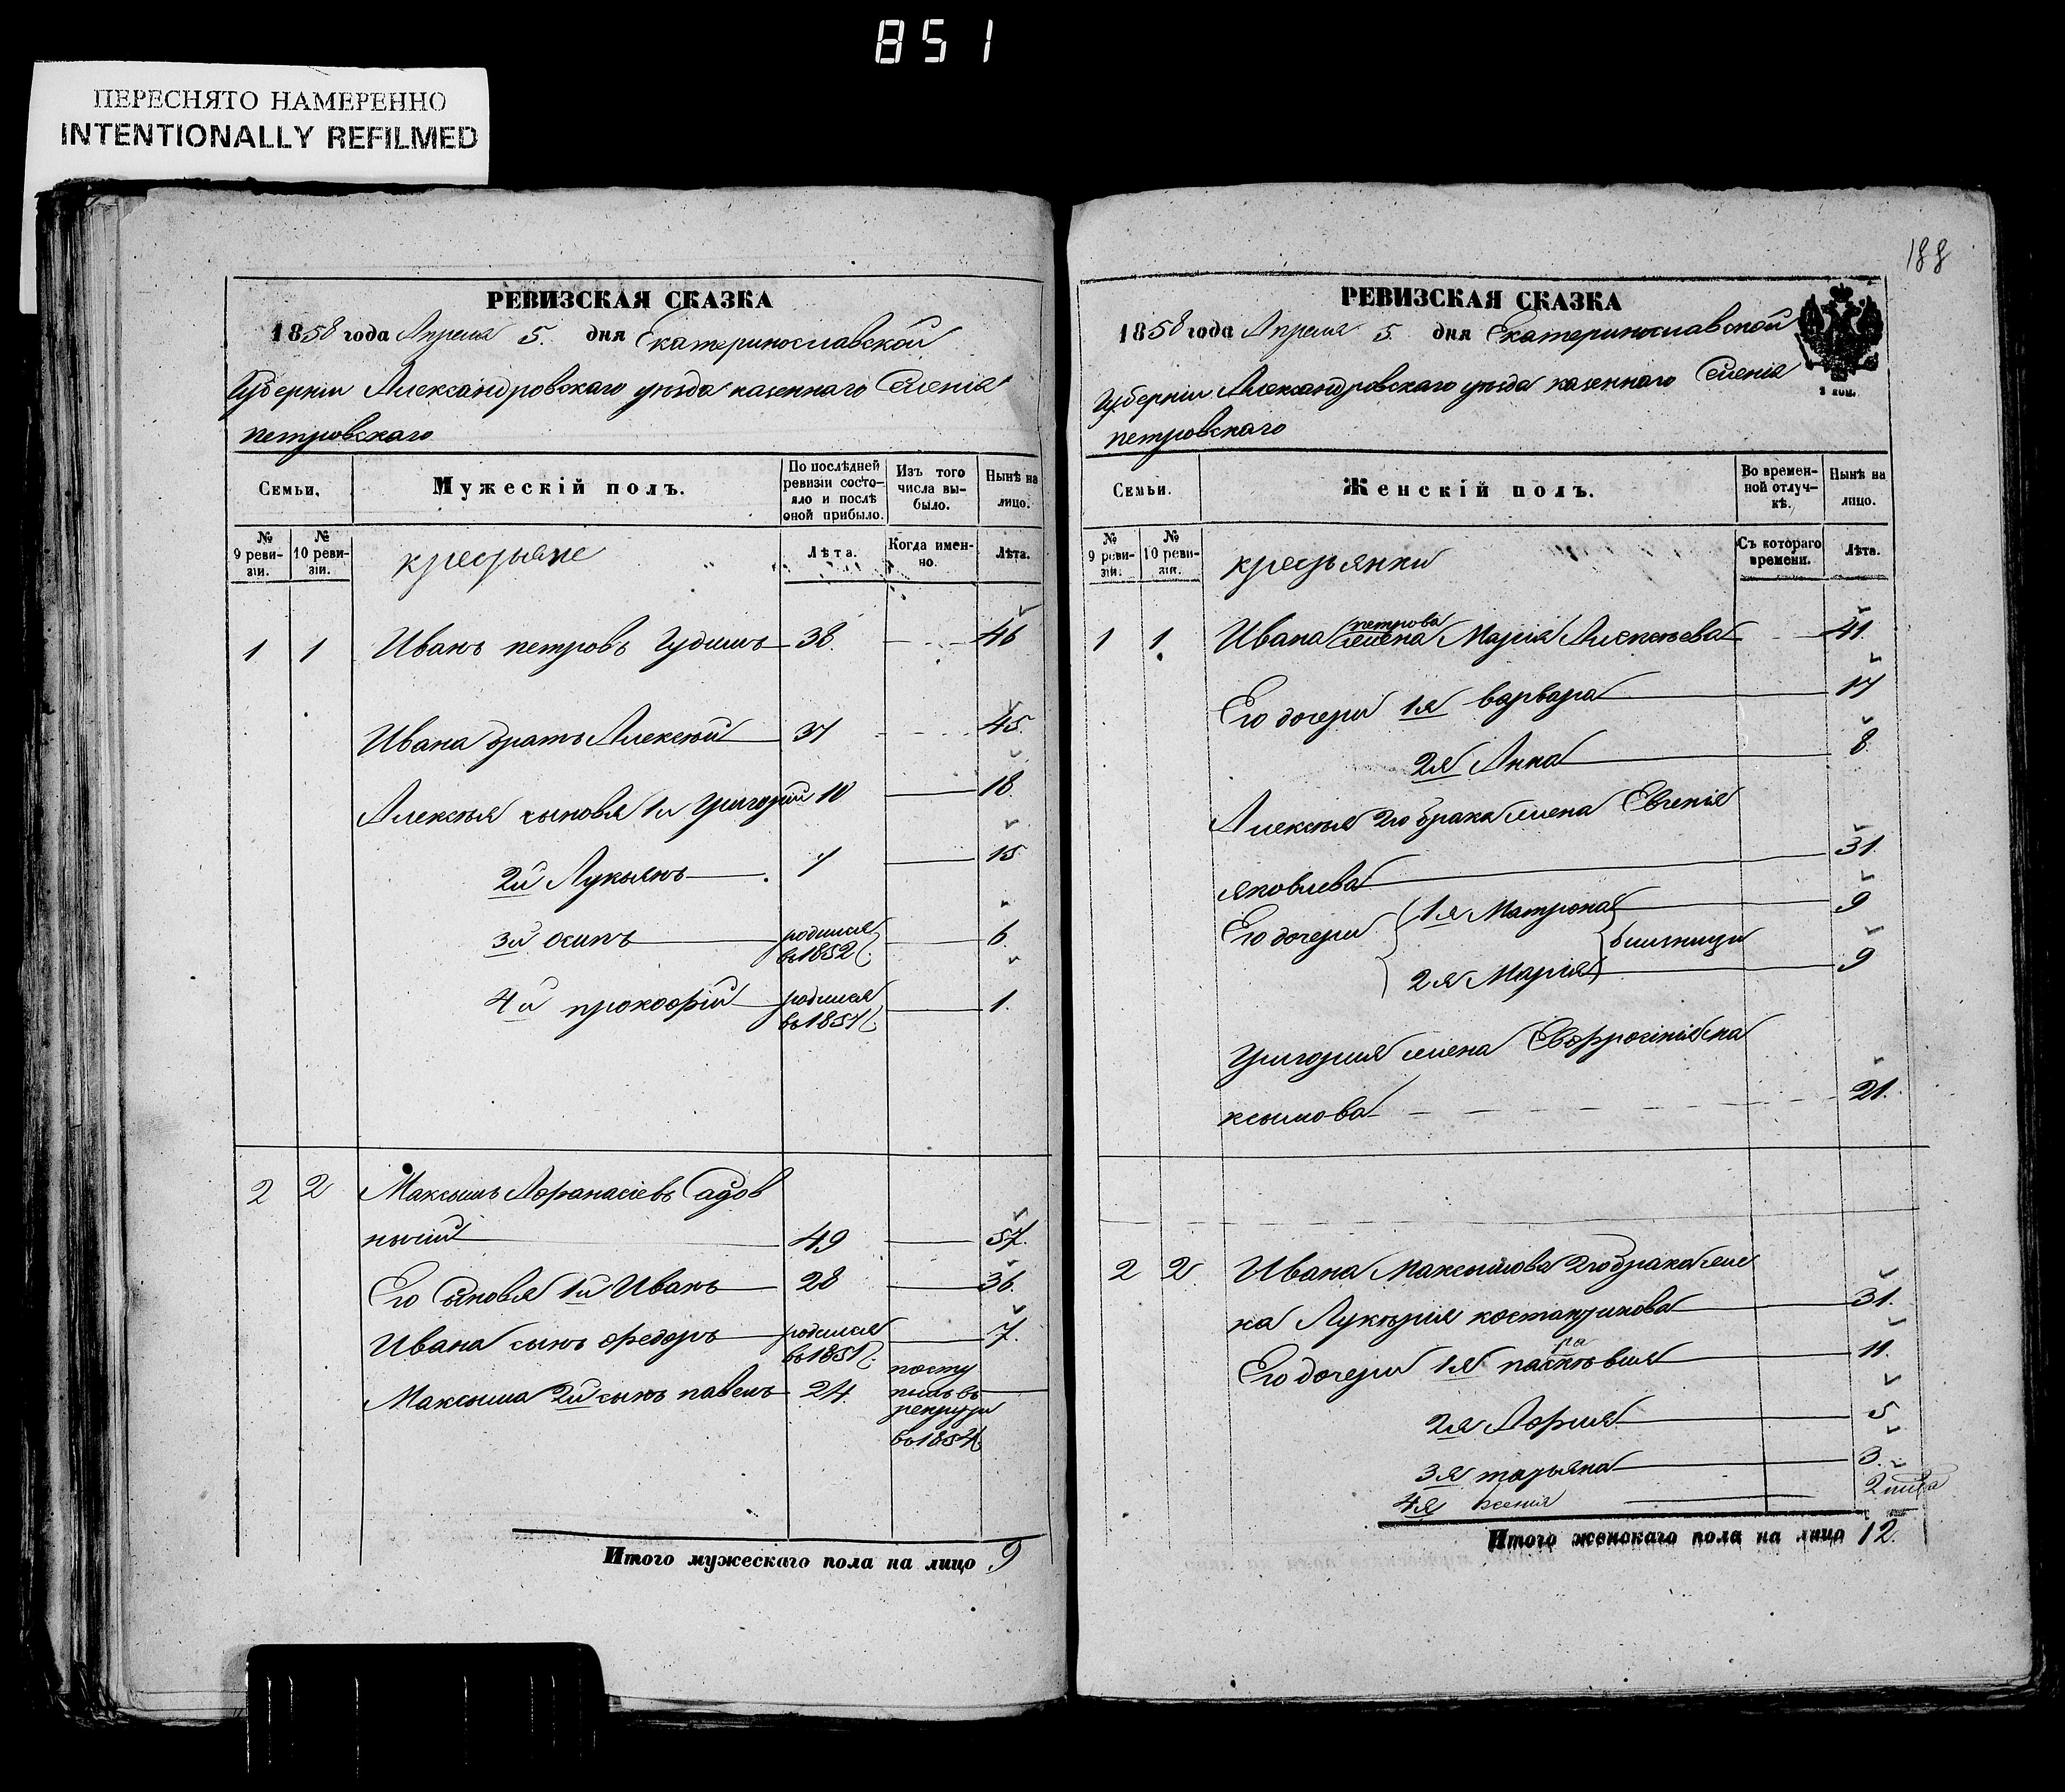 851
ПЕРЕСНЯТО НАМЕРЕННО
INTENTIONALLY REFILMED
РЕВИЗСКАЯ СКАЗКА
1858 года Апреля 5. дня Екатеринославской
Губерніи Александровскаго уѣзда казеннаго Селенія
петровскаго
Семьи.
Мужескій полъ.
По послѣдней ревизіи состояло и послѣ оной прибыло.
Изъ того числа выбыло.
Нынѣ на лицо.
№ 9 ревизіи.
№ 10 ревизіи.
крестьяне
Лѣта.
Когда именно.
Лѣта.
1 1 Иванъ петровъ Гудимъ 38. 46
Ивана братъ Алексѣй 37 45.
Алексѣя сыновья 1й Григорий 10 18.
2й Лукьянъ 7 15
3й осипъ родился въ 1852 6.
4й прокофій родился въ 1857 1.
2 2 Максымъ Афанасіевъ Садов
ничий 49 57.
Его сыновья 1й Иванъ 28 36.
Ивана сынъ федоръ родился въ 1851 7.
Максыма 2й сынъ павелъ 24. посту
пилъ въ
рекруты
въ 1854
Итого мужескаго пола на лицо 9
188
РЕВИЗСКАЯ СКАЗКА
1858 года Апреля 5. дня Екатеринославской
Губерніи Александровскаго уѣзда казеннаго Селенія
петровскаго
Семьи.
Женскій полъ.
Во временной отлучкѣ.
Нынѣ на лицо.
№ 9 ревизіи.
№ 10 ревизіи.
крестьянки
Съ котораго времени.
Лѣта.
1 1 Ивана петрова жена Марія Алексѣева 41.
Его дочери 1я варвара 17
2я Анна 8
Алексѣя 2го брака жена Евгенія
яковлева 31.
Его дочери 1я Матрона 9
близнецы
2я Марія 9
Григория жена Евфросинія ма
ксымова 21.
2 2 Ивана Максымова 2го брака же
на Лукѣрія костантинова 31.
Его дочери 1я 11.
2я 5
3я татьяна 3.
4я Ксенія 2
Итого женскаго пола на лицо 12.